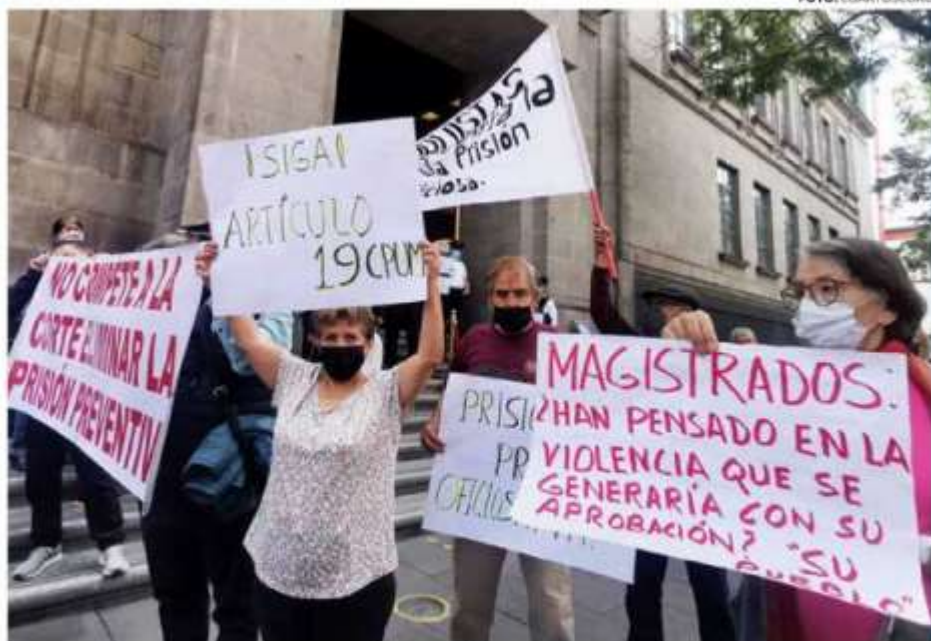 ¡SIGA!
ARTÍCULO
19 CPUM
la Prisión
NO COMPETE A LA
CORTE ELIMINAR LA
PRISIÓN PREVENTIV
PR
MAGISTRADOS:
¿HAN PENSADO EN LA
VIOLENCIA QUE SE
GENERARÍA CON SU
APROBACIÓN? "SU